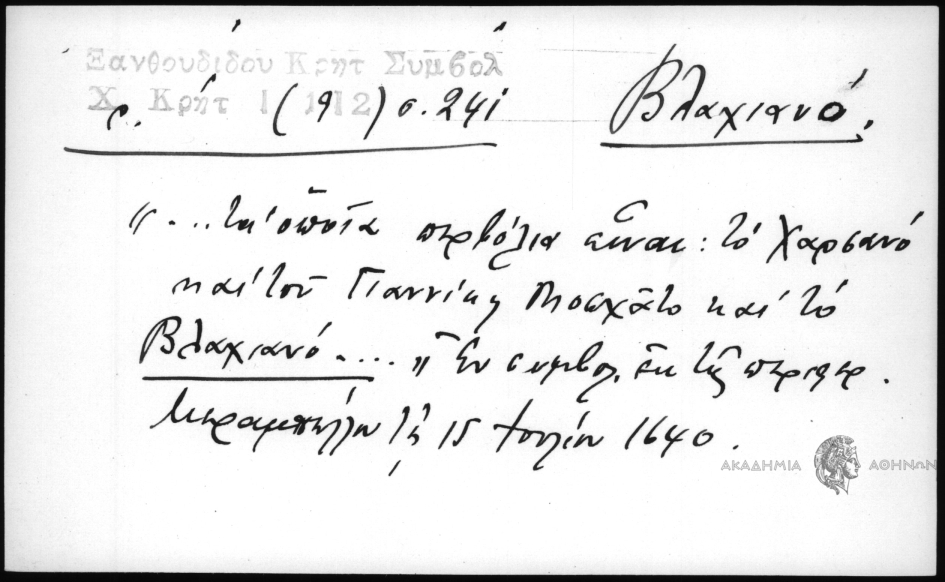 Ξανθουδίδου Κρητ Συμβόλ
Χ. Κρήτ 1 1912
(9) σ. 241 Βλαχιανό,
"... τα ὁποῖα περβόλια εἶναι: τό Χαρσανό
καί τοῦ Γιαννίκη Μοσχᾶτο καί τό
Βλαχιανό .... " Ἐν συμβολ. ἐκ τῆς περιφερ.
Μεραμπέλλου τῇ 15 Ἰουλίου 1640.
ΑΚΑΔΗΜΙΑ ΑΘΗΝΩΝ